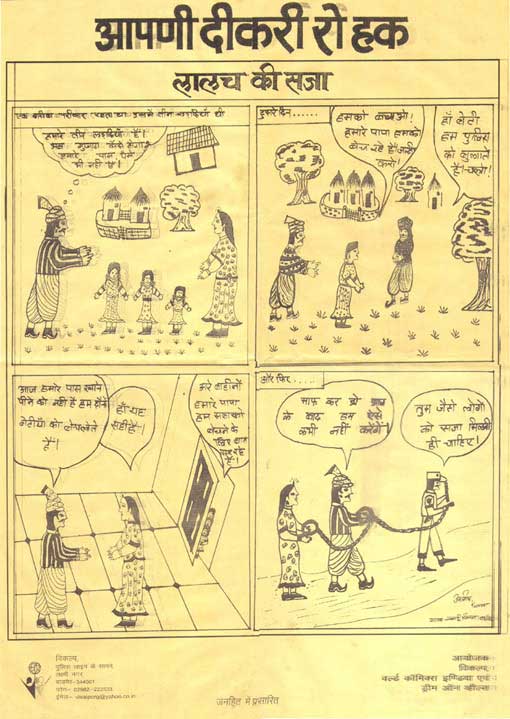 आपणी दीकरी रो हक
लालच की सजा
एक गरीब परिवार रहता था इसमें तीन लडकियाँ थी
हमारे तीन लडकियाँ है।
हमारे पास पैसे
भी नहीं है।
दुसरे दिन......
हमको बचाओ!
हमारे पापा हमको
बेच रहे हैं जल्दी
चलो!
हाँ बेटी
हम पुलिस
को बुलाते
है। चलो!
आज हमारे पास खाने
पीने को नहीं है हम दोनों
बेटीयों को बेच देते
है।
हाँ यह
सही है।
हमारे पापा
हम सबको
बेचने के
लिए
और फिर....
माफ कर दो आज
के बाद हम ऐसे
कभी नहीं करेंगें।
तुम जैसे लोगों
को सजा मिलनी
ही चाहिए।
विकल्प,
पुलिस लाइन के सामने,
लक्ष्मी नगर
बाडमेर-344001
फोन:- 02982-222533
जनहित में प्रसारित
आयोजक
विकल्प,
वर्ल्ड कॉमिक्स इण्डिया एवं
ड्रीम ऑन व्हील्स